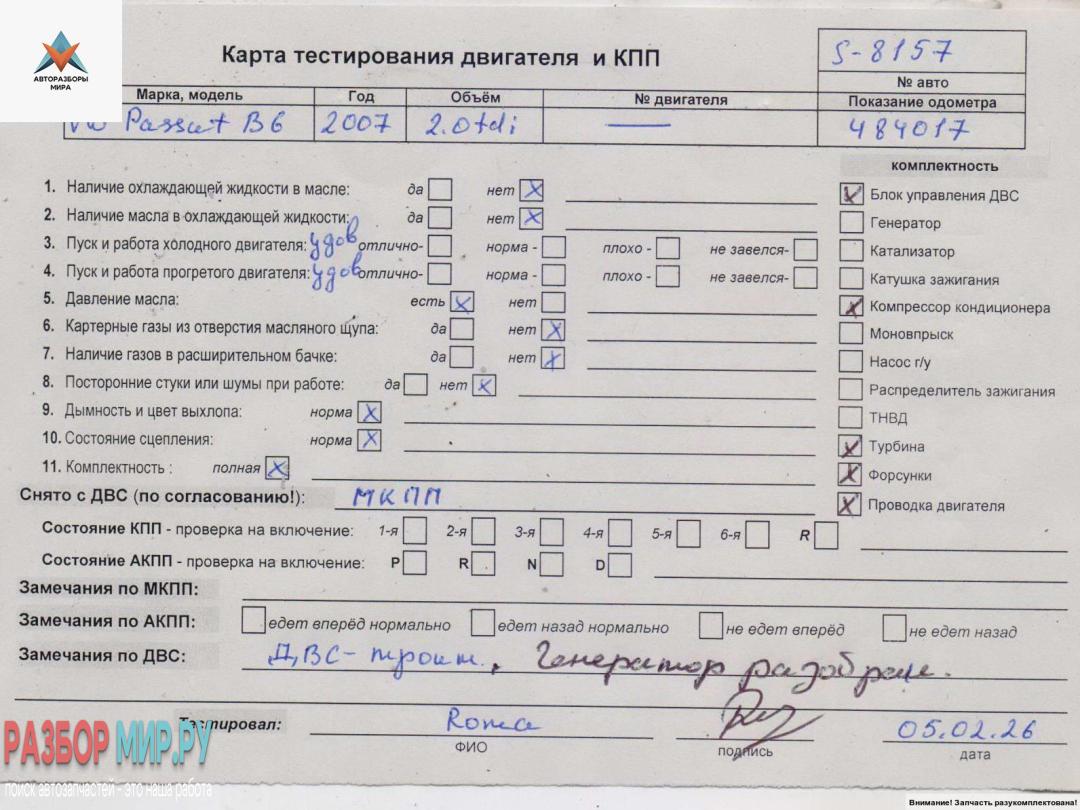 АВТОРАЗБОРЫ
МИРА
Карта тестирования двигателя и КПП
S-8157
№ авто
Марка, модель Год Объём № двигателя Показание одометра
VW Passat B6 2007 2.0 tdi — 484017
комплектность
1. Наличие охлаждающей жидкости в масле: да нет X
2. Наличие масла в охлаждающей жидкости: да нет X
3. Пуск и работа холодного двигателя: удов отлично- норма - плохо - не завелся-
4. Пуск и работа прогретого двигателя: удов отлично- норма - плохо - не завелся-
5. Давление масла: есть X нет
6. Картерные газы из отверстия масляного щупа: да нет X
7. Наличие газов в расширительном бачке: да нет X
8. Посторонние стуки или шумы при работе: да нет X
9. Дымность и цвет выхлопа: норма X
10. Состояние сцепления: норма X
11. Комплектность : полная X
Блок управления ДВС
Генератор
Катализатор
Катушка зажигания
Компрессор кондиционера
Моновпрыск
Насос г/у
Распределитель зажигания
ТНВД
Турбина
Форсунки
Проводка двигателя
Снято с ДВС (по согласованию!): МКПП
Состояние КПП - проверка на включение: 1-я 2-я 3-я 4-я 5-я 6-я R
Состояние АКПП - проверка на включение: P R N D
Замечания по МКПП:
Замечания по АКПП: едет вперёд нормально едет назад нормально не едет вперёд не едет назад
Замечания по ДВС: ДВС - троит., Генератор разобран.
Тестировал: Roma 05.02.26
ФИО подпись дата
РАЗБОР МИР.РУ
поиск автозапчастей - это наша работа
Внимание! Запчасть разукомплектована!